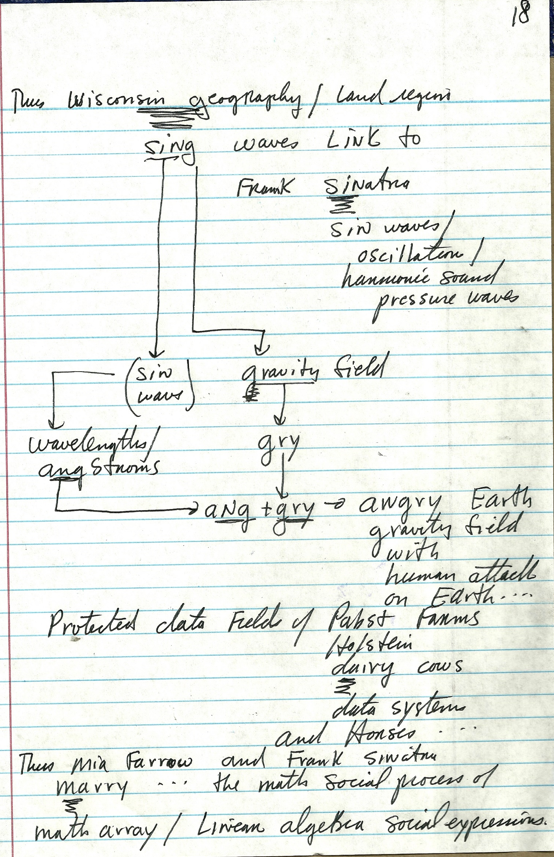 18
Thus Wisconsin geography / Land region
sing waves Link to
Frank Sinatra
sin waves/
oscillation/
harmonic sound
pressure waves
(sin wave) gravity field
wavelengths/ gry
angstroms
ang + gry → angry Earth
gravity field
with
human attack
on Earth....
Protected data fields of Pabst Farms
Holstein
dairy cows
data systems
and Horses ....
Thus Mia Farrow and Frank Sinatra
marry ... the math social process of
math array / Linear algebra social expressions.